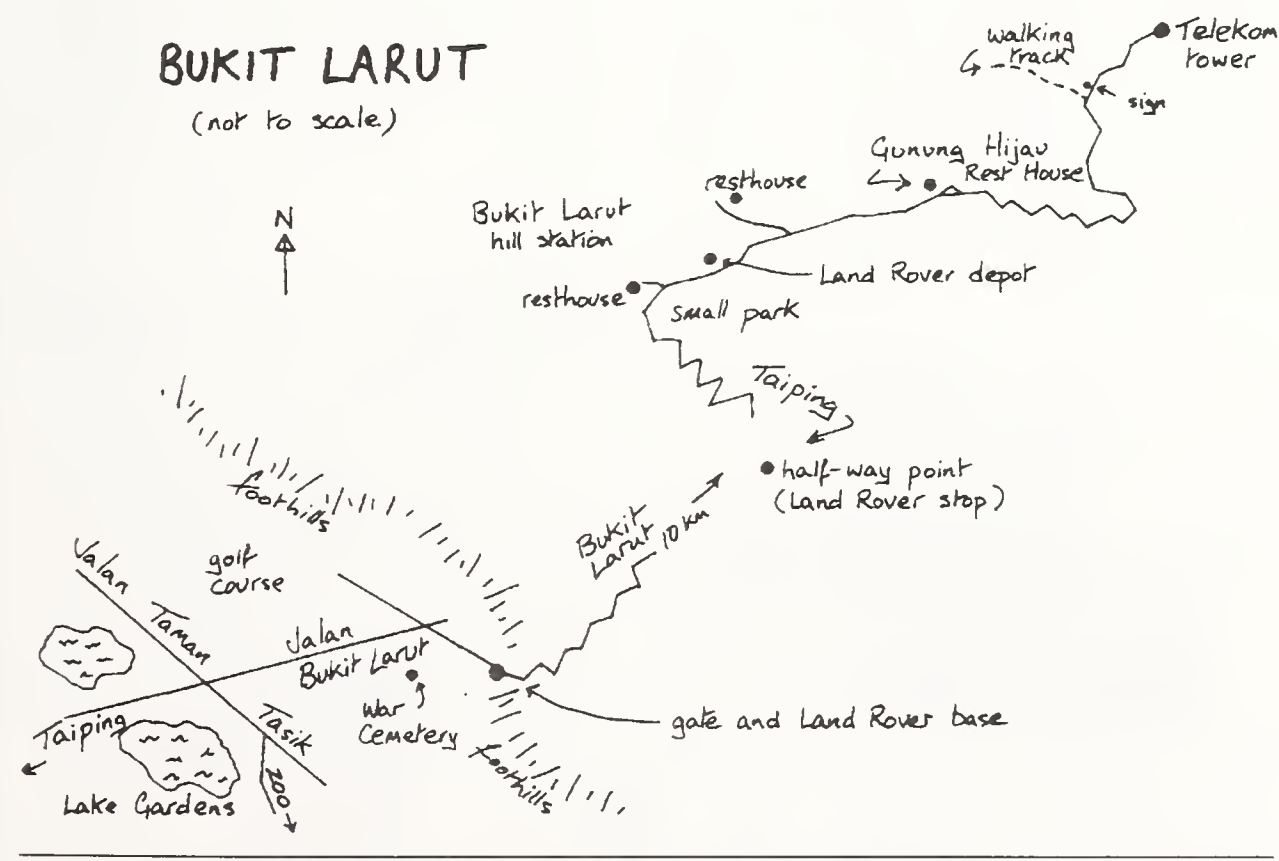 BUKIT LARUT
(not to scale)
N
walking
track
Telekom
tower
sign
Gunung Hijau
Rest House
resthouse
Bukit Larut
hill station
Land Rover depot
resthouse
small park
Taiping
half-way point
(Land Rover stop)
Bukit
Larut 10 km
foothills
golf
course
Jalan
Taman
Tasik
Jalan
Bukit Larut
War
Cemetery
Taiping
Lake Gardens
zoo
foothills
gate and Land Rover base